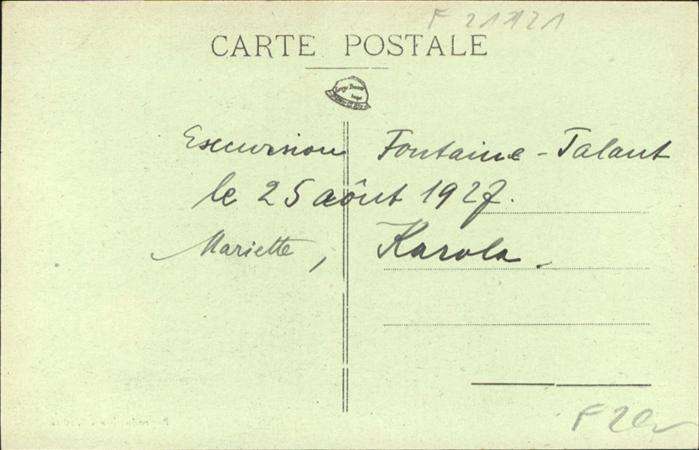 F 21121
CARTE POSTALE
Excursion Fontaine - Talant
le 25 août 1927.
Mariette, Karola.